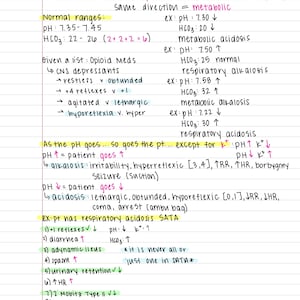 same direction = metabolic
Normal ranges:
pH: 7.35-7.45
HCO₃: 22-26 (2+2+2=6)
ex: pH: 7.30 ↓
HCO₃: 20 ↓
metabolic acidosis
ex: pH: 7.50 ↑
HCO₃: 25 normal
respiratory alkalosis
ex: pH: 7.58 ↑
HCO₃: 32 ↑
metabolic alkalosis
ex: pH: 7.22 ↓
HCO₃: 30 ↑
respiratory acidosis
Given a list: Opioid Meds
↳ CNS depressants
→ restless v obtunded
→ +4 reflexes v +1
→ agitated v lethargic
→ hyporeflexia v hyper
As the pH goes... so goes the pt... except for K⁺
: pH ↑ K⁺ ↓
pH ↑ = patient goes ↑
pH ↓ K⁺ ↑
↳ alkalosis: irritability, hyperreflexic [3,4], ↑RR, ↑HR, borborygmi
seizure (suction)
pH ↓ = patient goes ↓
↳ acidosis: lethargic, obtunded, hyporeflexic [0,1], ↓RR, ↓HR,
coma, arrest (ambu bag)
ex: pt has respiratory acidosis SATA
1) +1 reflexes ✓ ↓
pH: ↓ K⁺: ↑
2) diarrhea ↑
HCO₃: ↑
3) adynamic ileus
* it is never all or
4) spasm ↑
just one in SATA*
5) urinary retention ✓ ↓
6) ↑HR ↑
7) 2° Mobitz Type